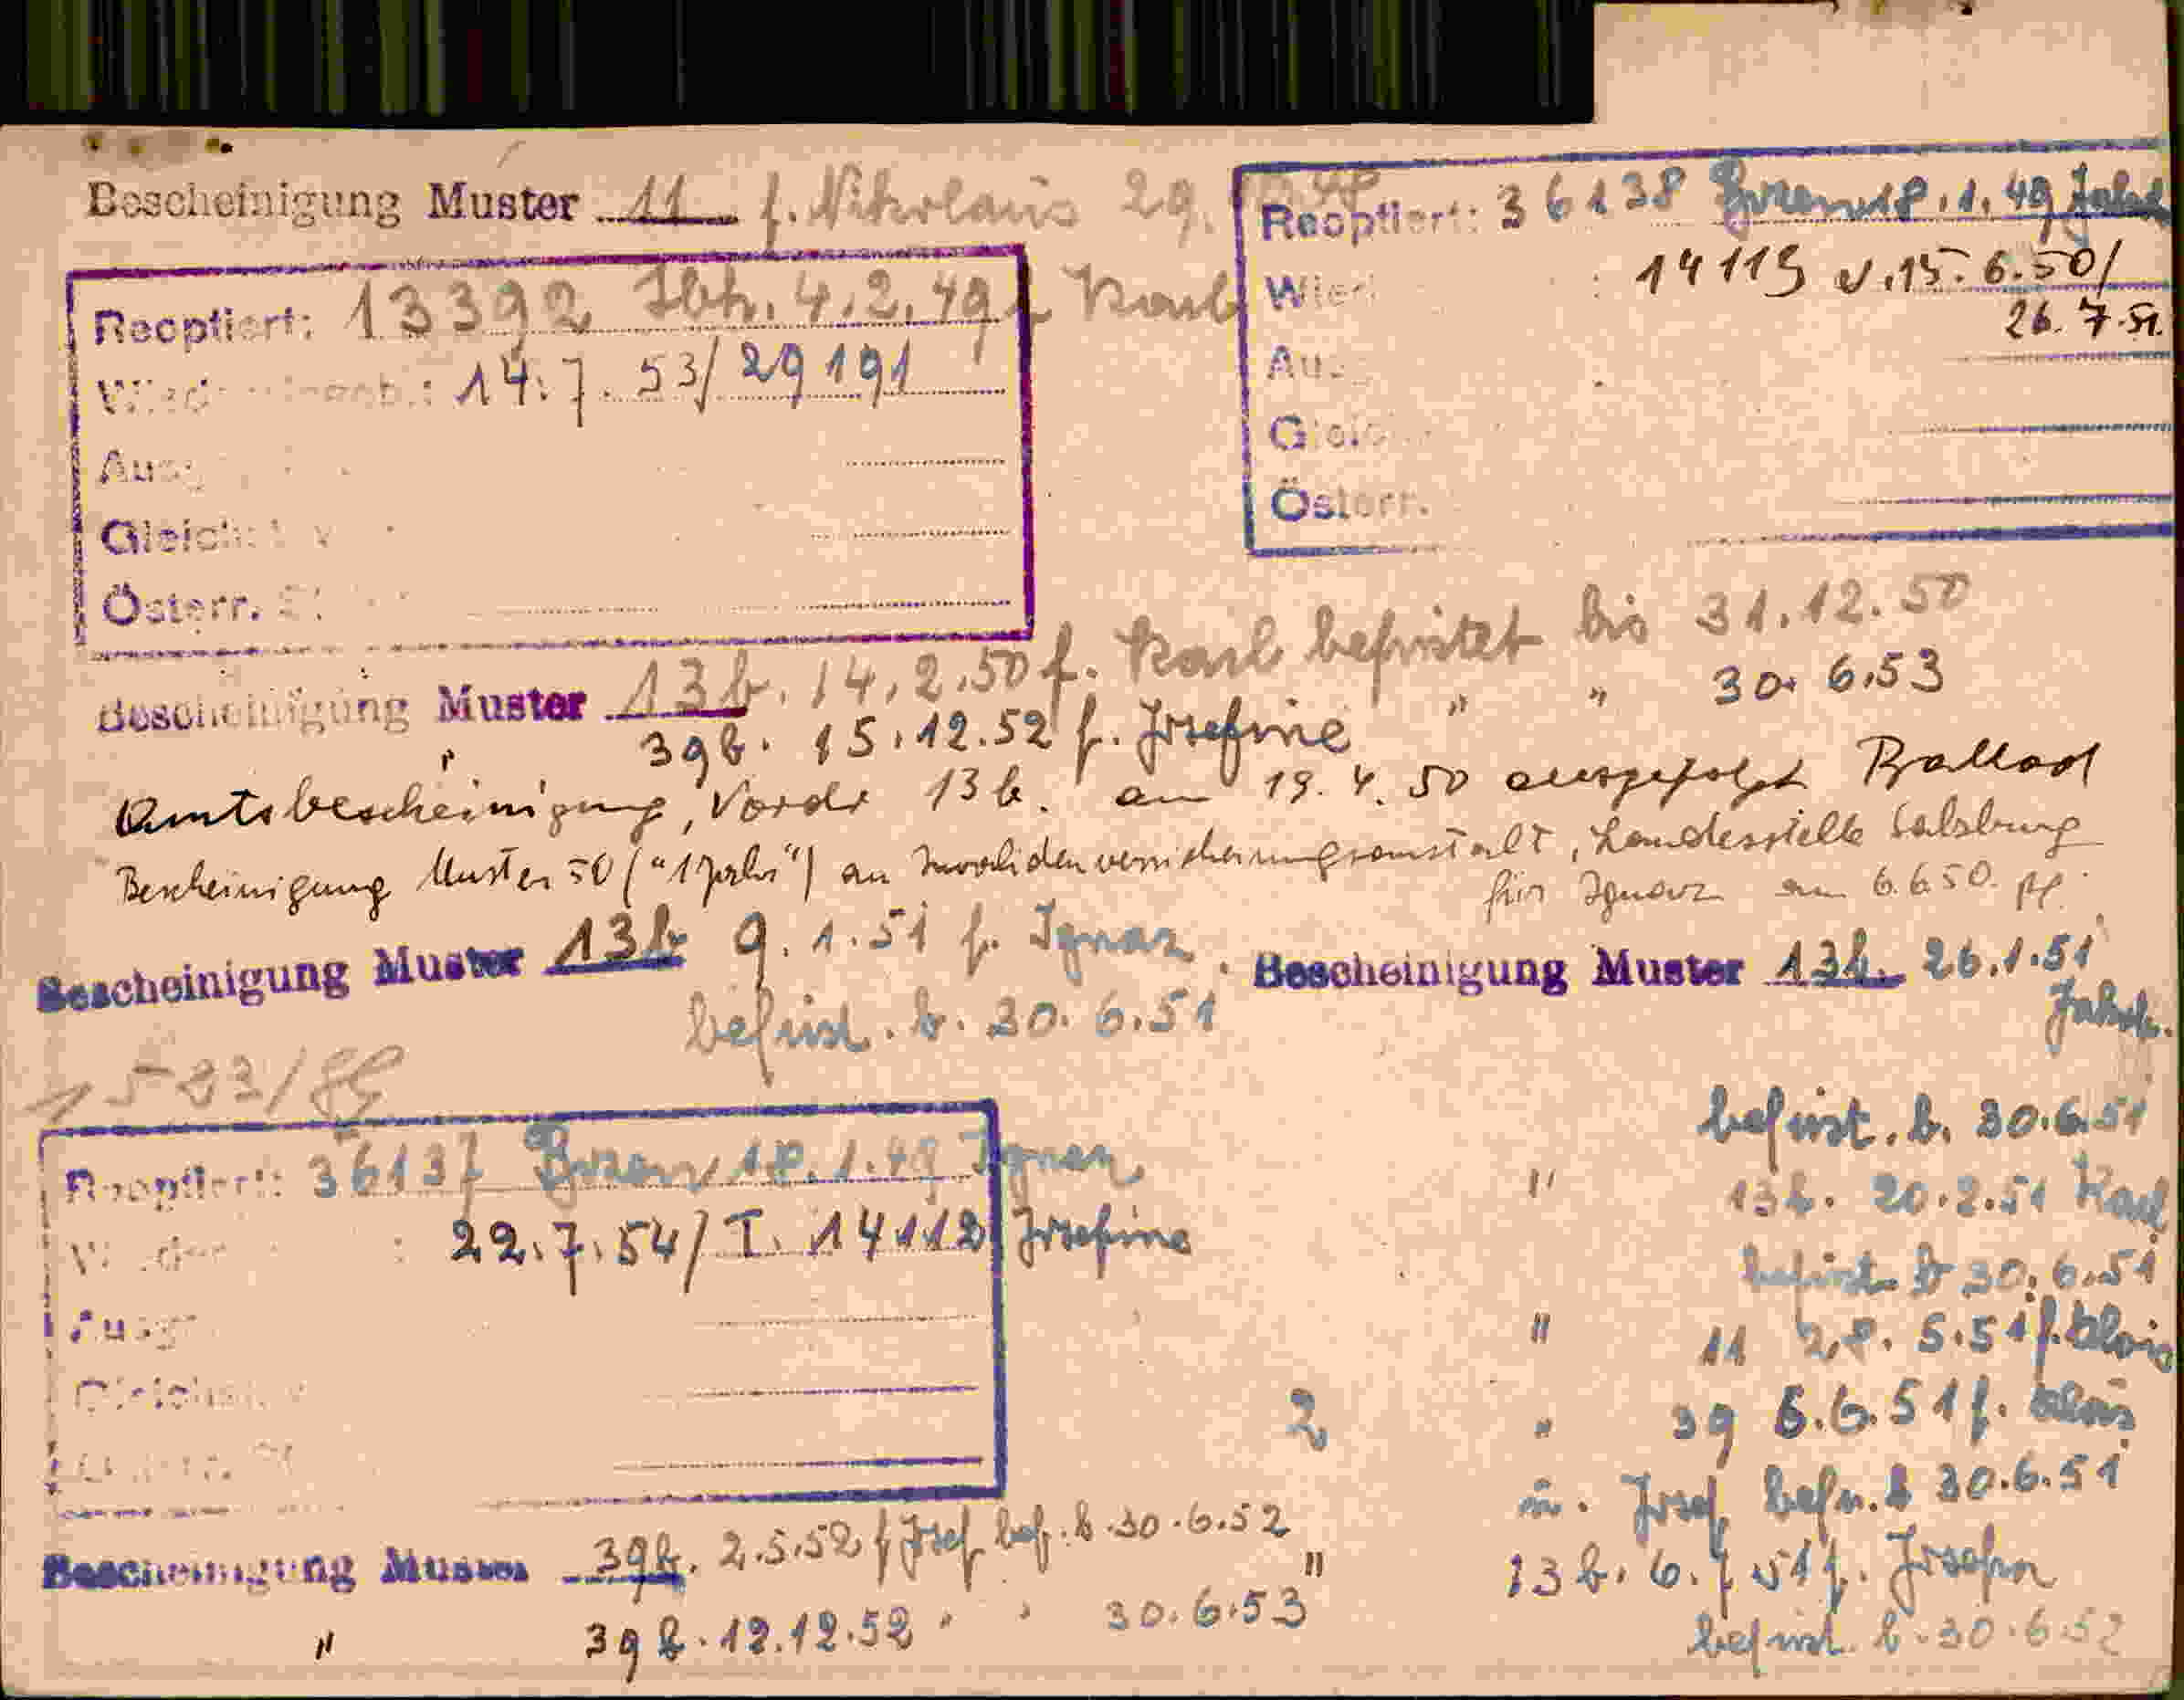 Bescheinigung Muster 11 f. Nikolaus 29.
Reoptiert: 13392 Ibk. 4.2.49 Karl
14.7.53/29191
Ausg
Gleich
Österr.
Reoptiert: 36138 Bozen 18.1.49 Jakob
14119 v. 15.6.50/
26.7.51.
Österr.
Bescheinigung Muster 13b. 14.2.50 f. Karl befristet bis 31.12.50
" 39b. 15.12.52 f. Josefine " " 30.6.53
Amtsbescheinigung, Vordr 13b. am 19.4.50 ausgefolgt
Bescheinigung Muster 50 ("1 Jahr") an Invalidenversicherungsanstalt, Landesstelle Salzburg
für Ignaz am 6.6.50.
Bescheinigung Muster 13b 9.1.51 f. Ignaz
befrist. b. 30.6.51
Bescheinigung Muster 13b. 26.1.51
Jakob.
befrist. b. 30.6.51
" 13b. 20.2.51 Karl
befrist. b 30.6.51
" 11 28.5.51 f. Alois
2 " 39 6.51 f. Alois
u. Josef befr. b 30.6.51
" 13b. 6.7.51 f.
befrist. b. 30.6.52
Reoptiert: 36137 Bozen, 18.1.49 Ignaz
22.7.54/T. 14112 Josefine
Bescheinigung Muster 39b. 2.5.52 f Josef bef. b. 30.6.52
" 39b. 12.12.52 " " 30.6.53